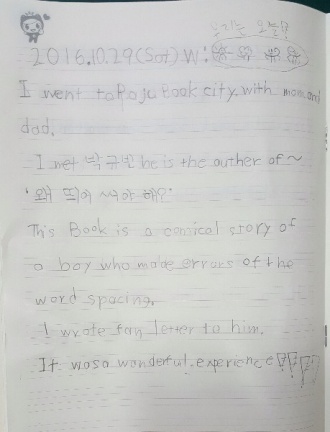 우리는 오늘!?
2016.10.29(Sat) W:
I went to Paju Book city with mom and
dad.
I met 박규빈 he is the auther of ~
'왜 띄어 써야 해?'
This Book is a comical story of
a boy who made errors of the
word spacing.
I wrote fan letter to him.
It was a wonderful experience!!!